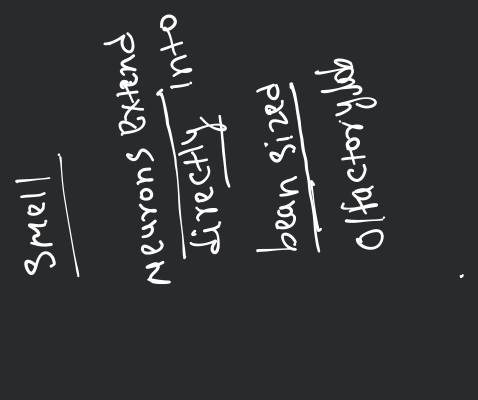 Smell
Neurons extend
directly into
bean sized
Olfactory